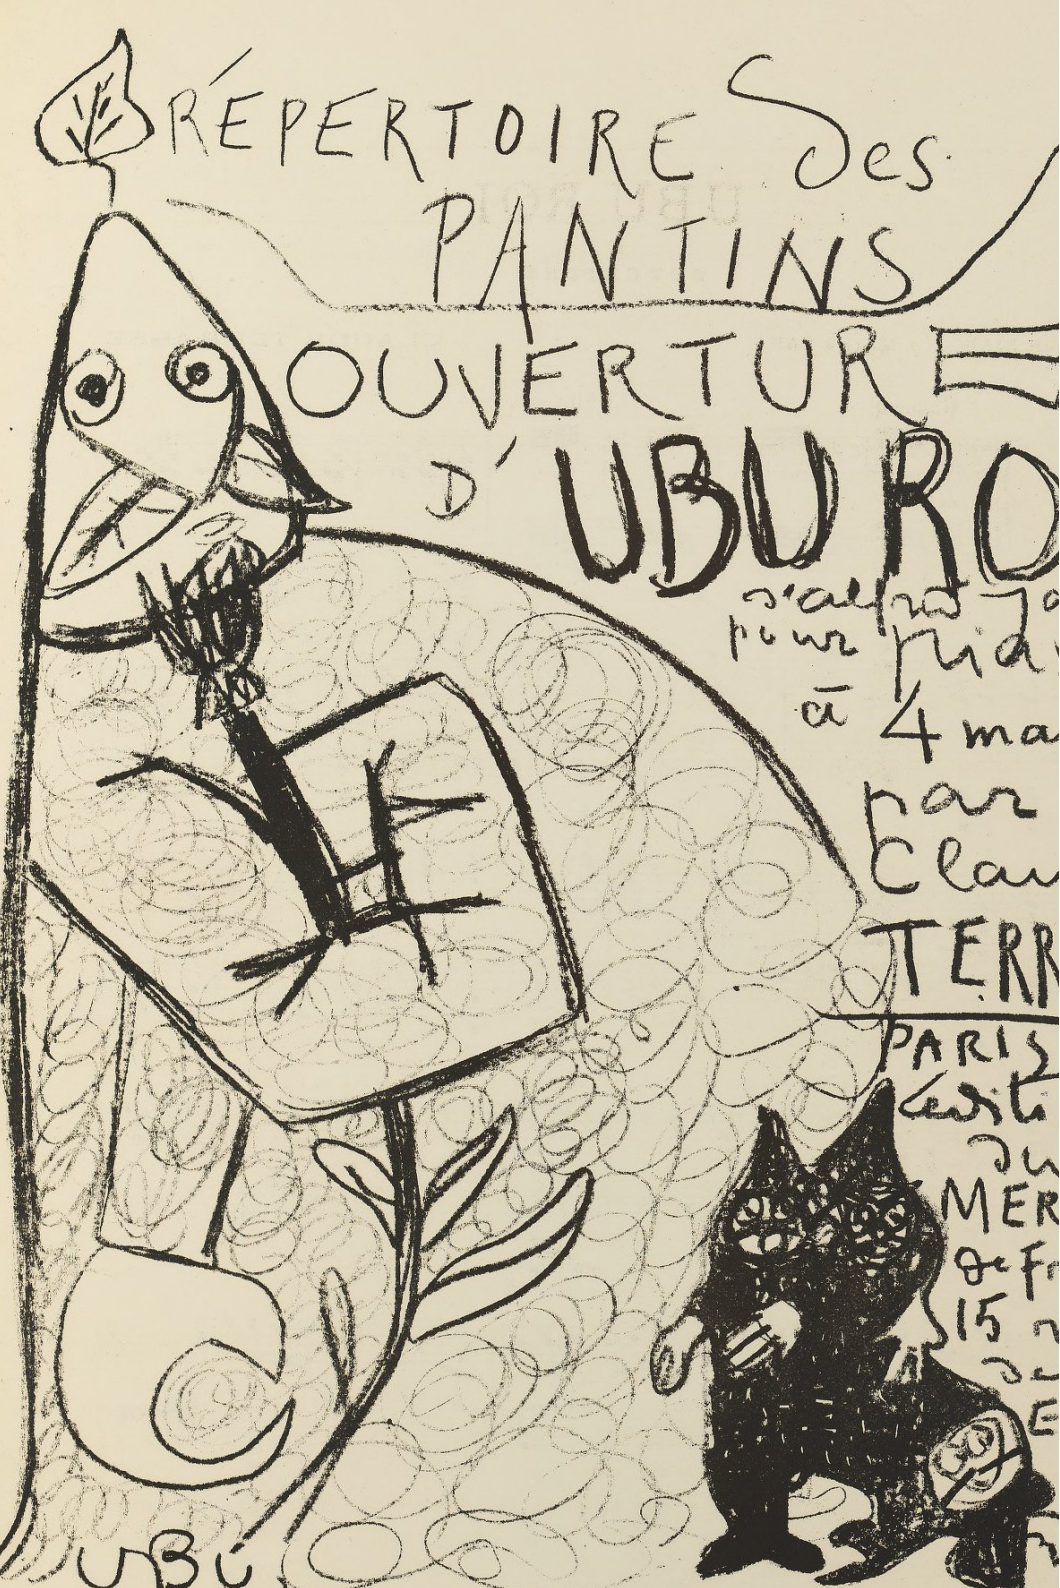 RÉPERTOIRE des
PANTINS
OUVERTURE
D'UBU RO
pour
à 4 ma
par
Clau
TERR
PARIS
du
MER
de Fr
15
UBU